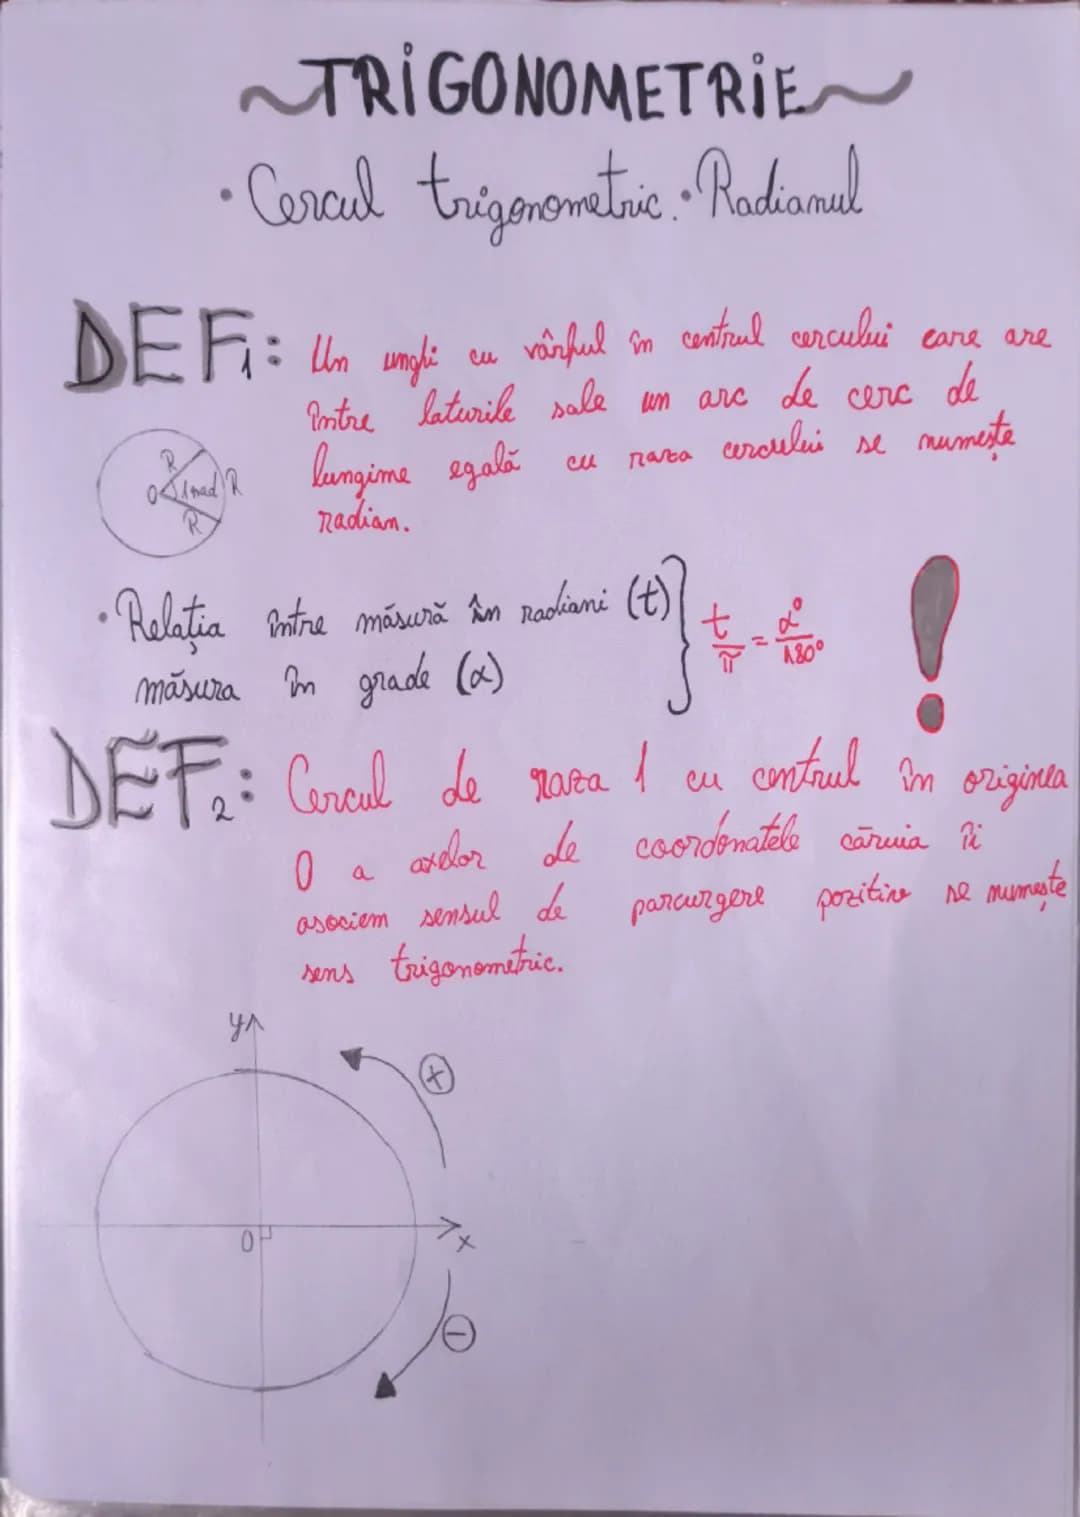 ~TRIGONOMETRIE~
• Cercul trigonometric. • Radianul
DEF1: Un unghi cu vârful în centrul cercului care are
între laturile sale un arc de cerc de
lungime egală cu raza cercului se numește
radian.
R
O 1 rad R
R
• Relația între măsură în radiani (t)
măsura în grade (α)
t/π = α°/180°
!
DEF2: Cercul de raza 1 cu centrul în originea
O a axelor de coordonatele căruia îi
asociem sensul de parcurgere pozitiv se numește
sens trigonometric.
y
+
O
x
−